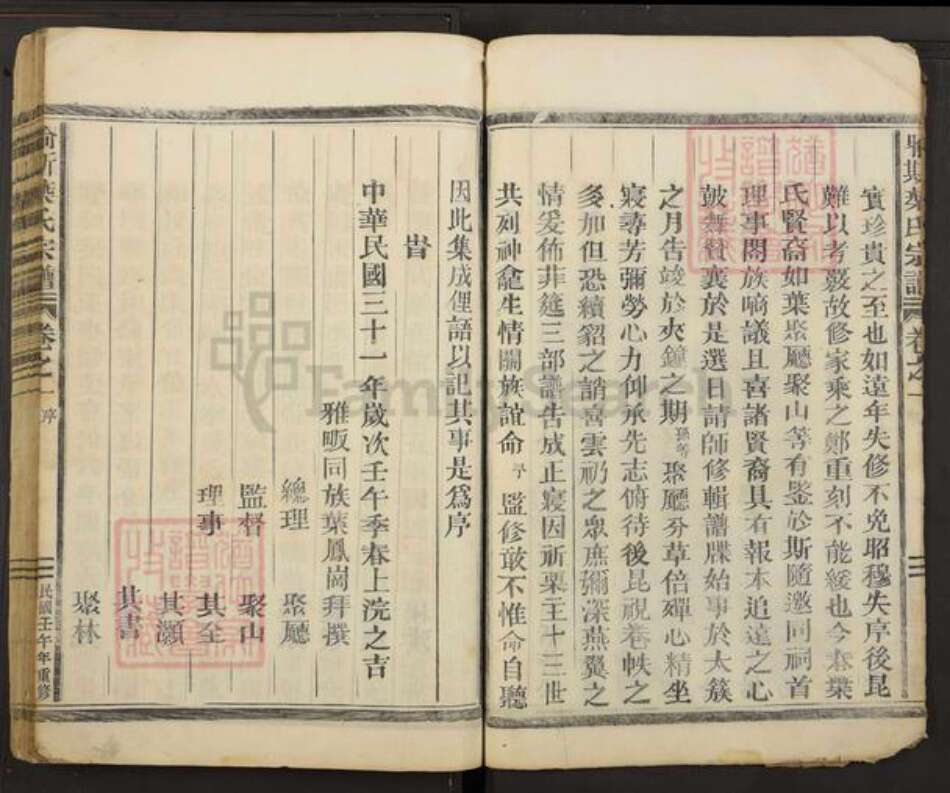 葉氏宗譜 卷之一
實珍貴之至也如遠年失修不免昭穆失序後昆
難以考覈故修家乘之鄭重刻不能緩也今
氏賢裔如葉聚廳聚山等有鑒於斯隨邀同祠首
理事閤族嘀議且喜諸賢裔具有報本追遠之心
鼓舞贊襄於是選日請師修輯譜牒始事於太簇
之月告竣於夾鐘之期孫等聚廳分草倍殫心精坐
寢尋芳彌勞心力仰承先志俯待後昆視卷帙之
多加但恐續貂之誚喜雲礽之眾庶彌深燕翼之
情爰佈菲筵三部譜告成正寢因祈栗主十三世
共列神龕生情關族誼命予監修敢不惟命自聽
因此集成俚語以記其事是為序
旹
中華民國三十一年歲次壬午季春上浣之吉
雅畈同族葉鳳崗拜撰
總理 聚廳
監督 聚山
理事 其全
其灝
其書
聚林
葉氏宗譜 卷之一 序
民國壬午年重修